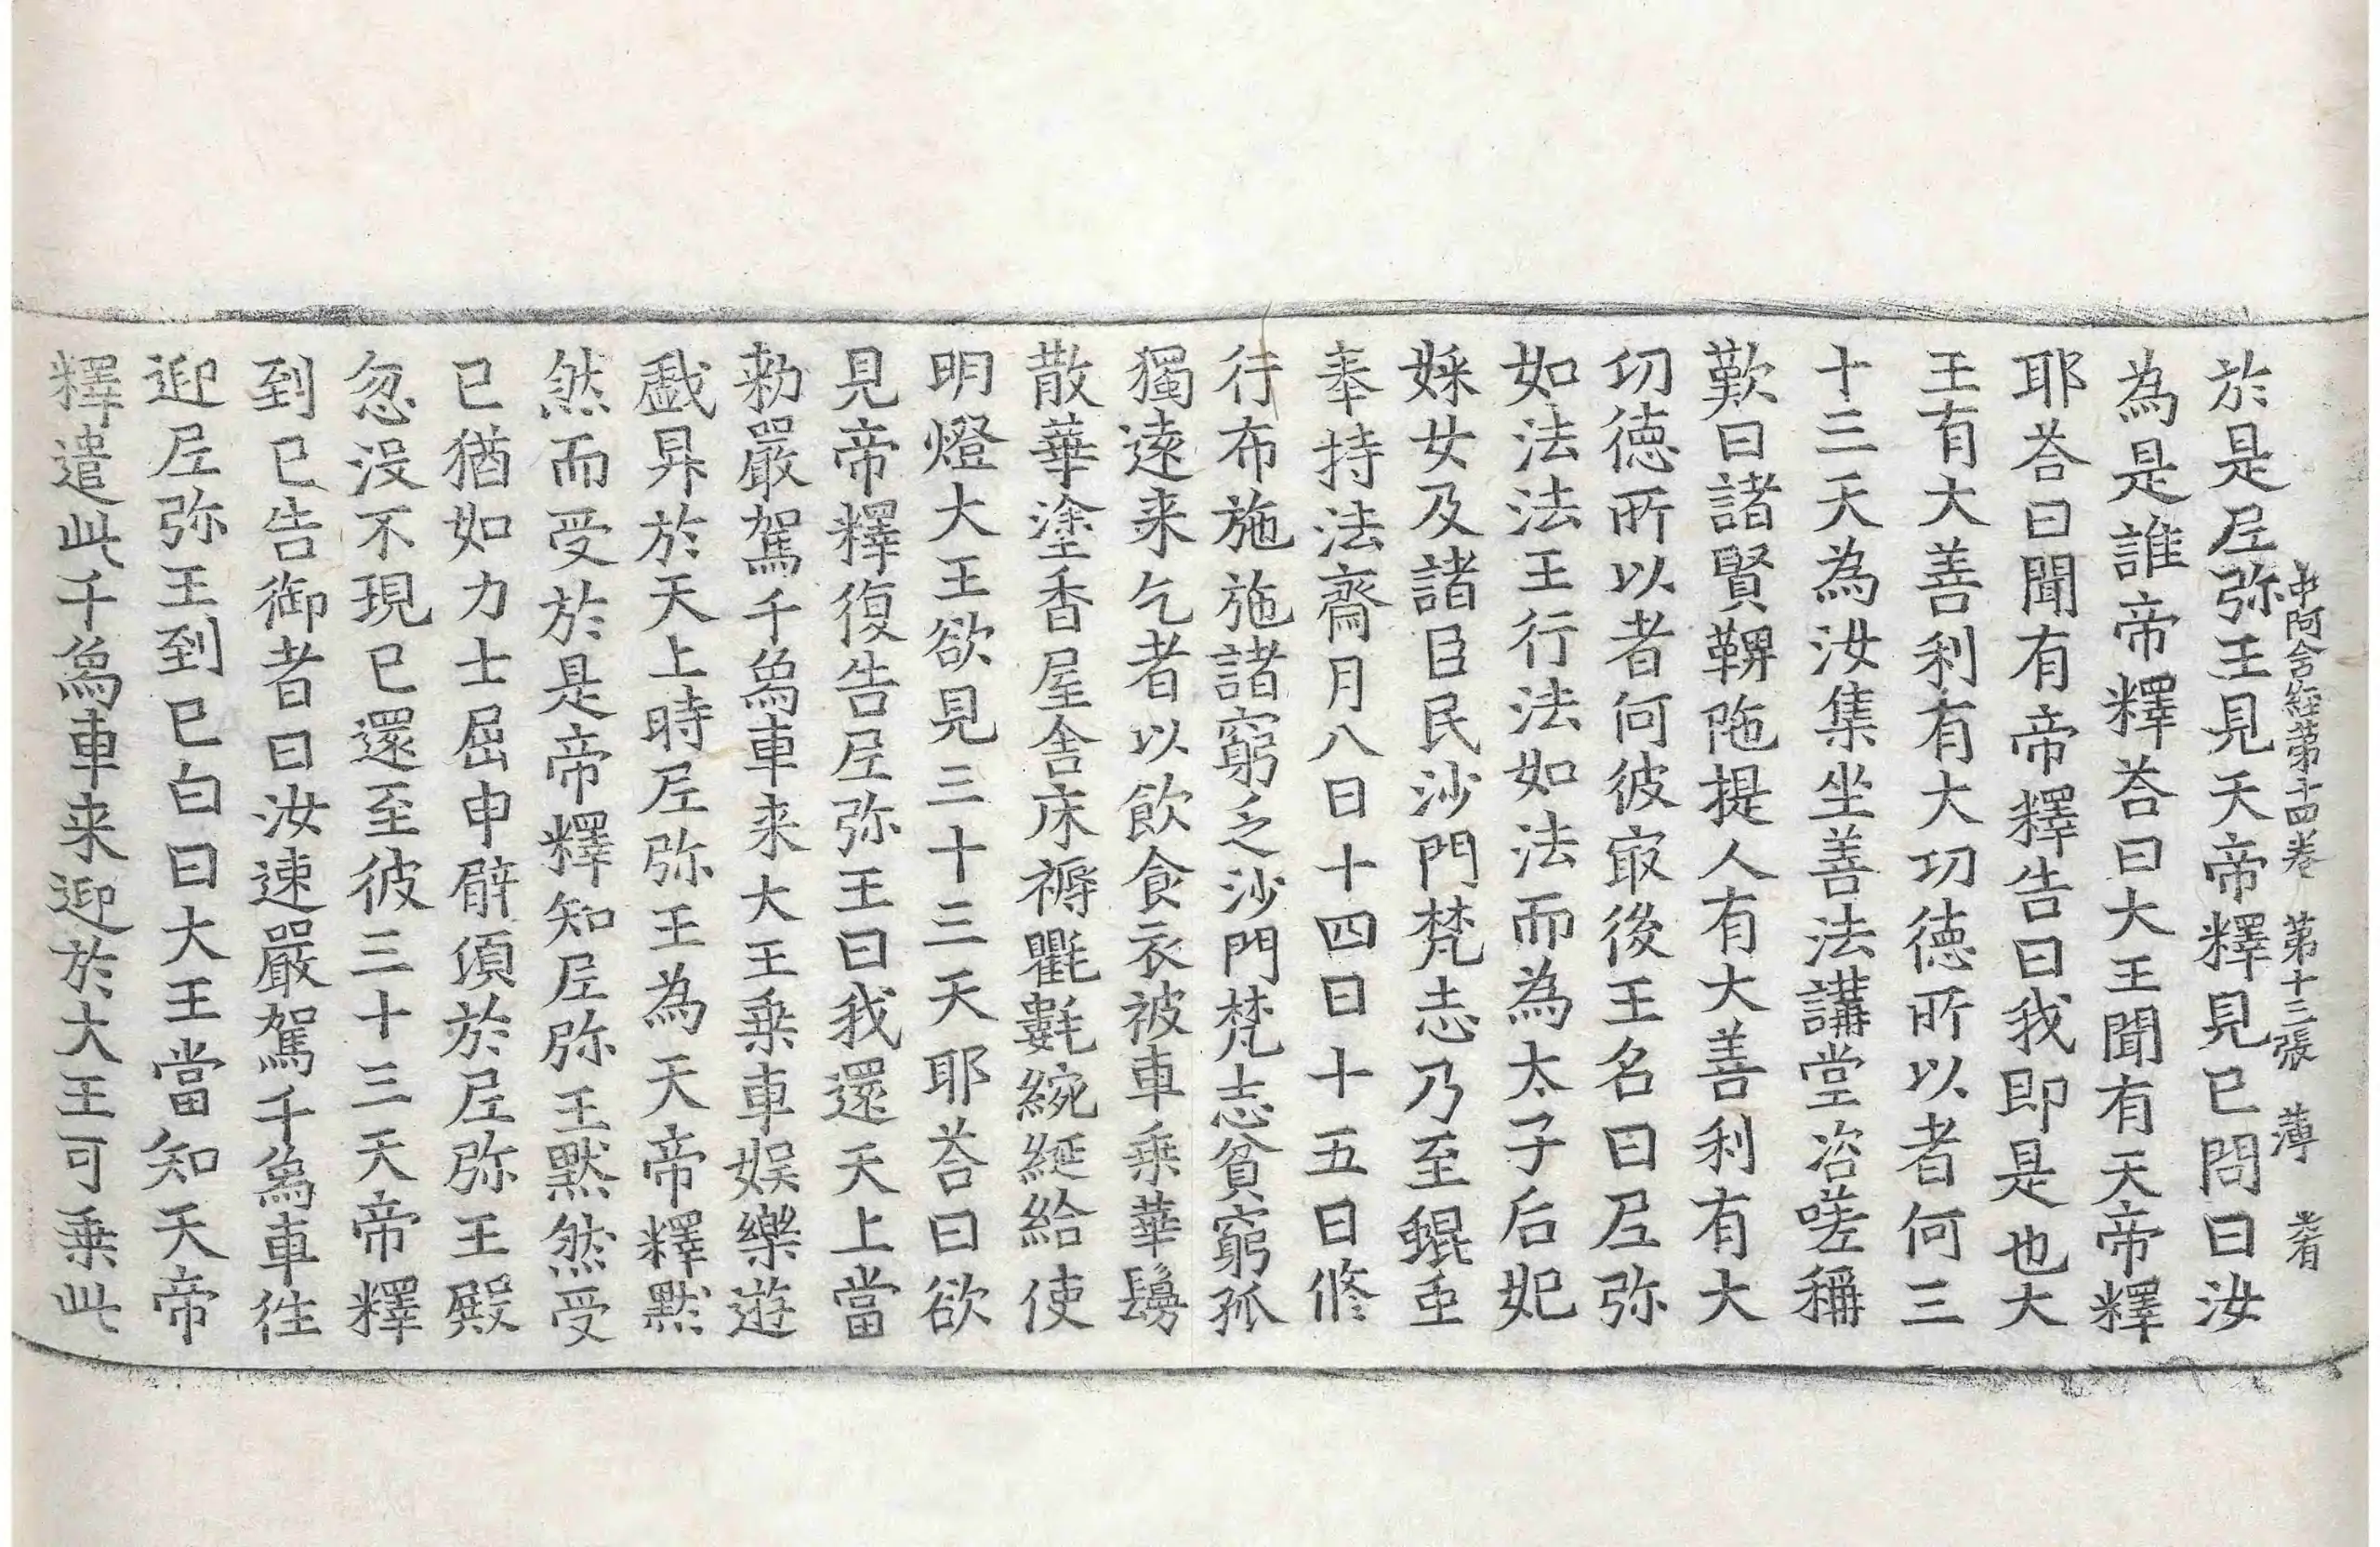 中阿含經第十四卷 第十三張 薄
於是𡰱弥王見天帝釋見已問曰汝
為是誰帝釋荅曰大王聞有天帝釋
耶荅曰聞有帝釋告曰我即是也大
王有大善利有大功德所以者何三
十三天為汝集坐善法講堂咨嗟稱
歎曰諸賢鞞陁提人有大善利有大
功德所以者何彼冣後王名曰𡰱弥
如法法王行法如法而為太子后妃
婇女及諸臣民沙門梵志乃至蜫䖝
奉持法齋月八日十四日十五日脩
行布施施諸窮乏沙門梵志貧窮孤
獨遠来乞者以飲食衣被車乗華鬘
散華塗香屋舍床褥氍𣰽綩綖給使
明燈大王欲見三十三天耶荅曰欲
見帝釋復告𡰱弥王曰我還天上當
勑嚴駕千象車来大王乗車娛樂遊
戯昇於天上時𡰱弥王為天帝釋黙
然而受於是帝釋知𡰱弥王黙然受
已猶如力士屈申臂頃於𡰱弥王殿
忽没不現已還至彼三十三天帝釋
到已告御者曰汝速嚴駕千象車往
迎𡰱弥王到已白曰大王當知天帝
釋遣此千象車来迎於大王可乗此